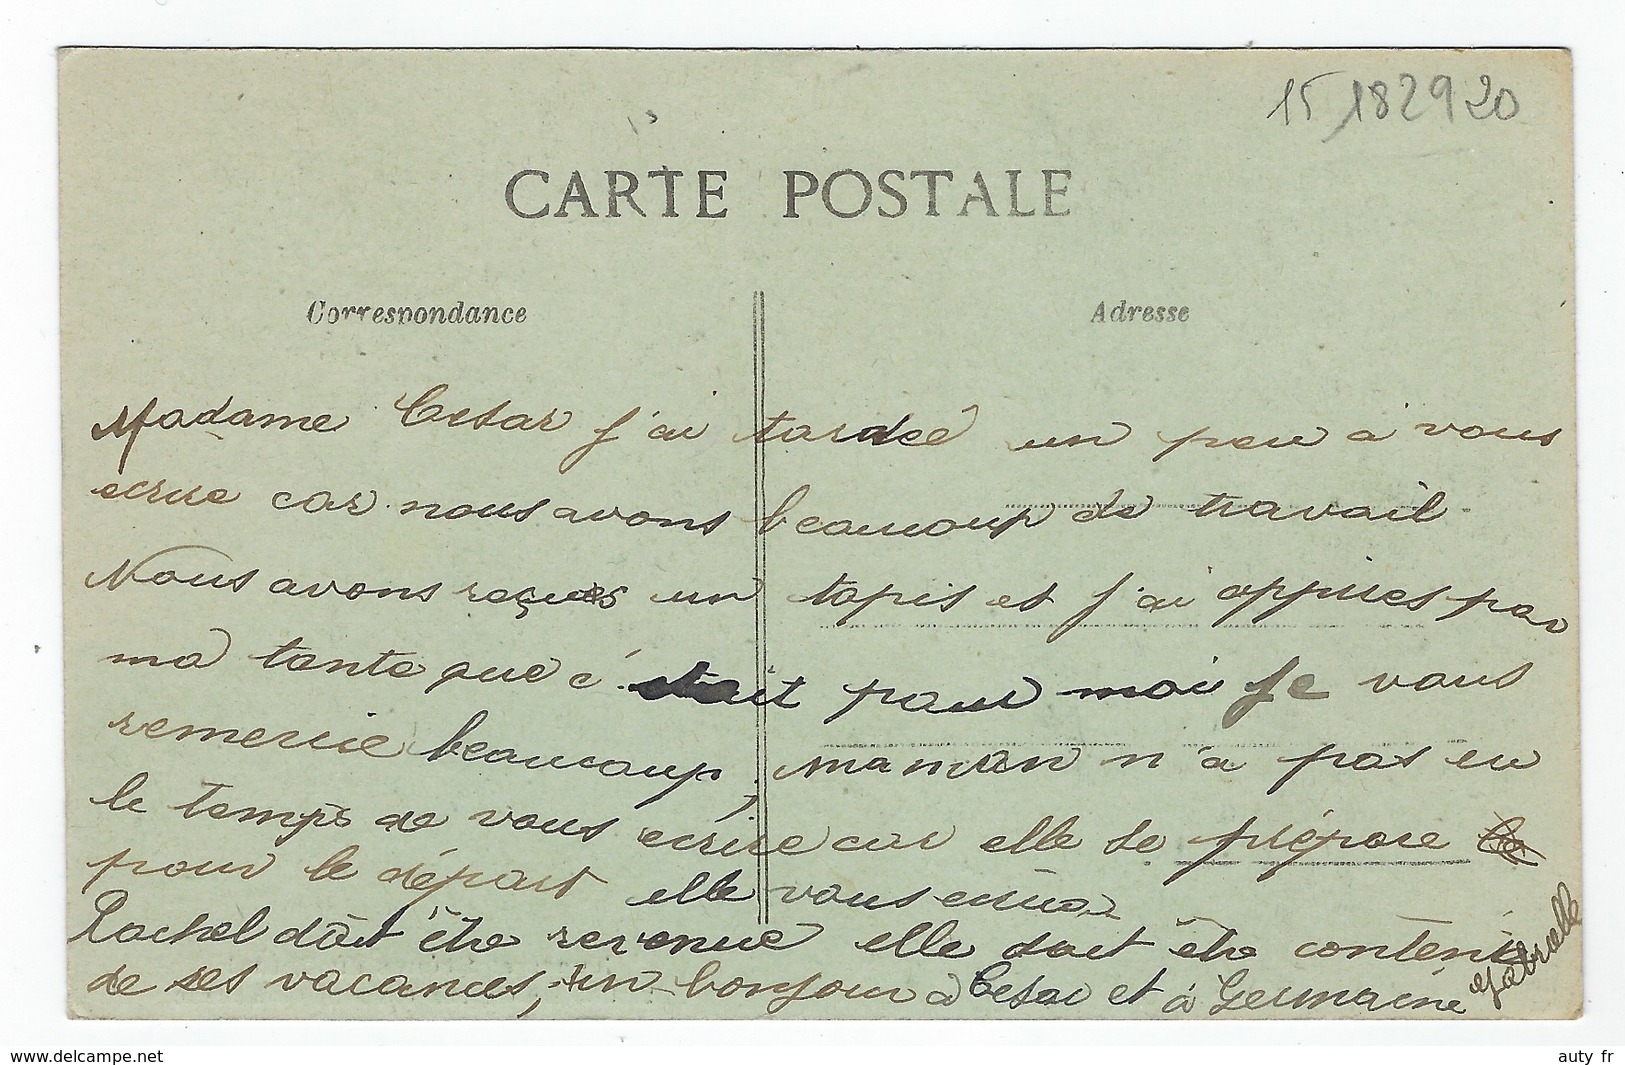 15 182920
CARTE POSTALE
Correspondance
Adresse
Madame Cesar j'ai tardeé un peu à vous
ecrire car nous avons beaucoup de travail
Nous avons reçues un tapis et j'ai appries par
ma tante que c'était pour moi Je vous
remercie beaucoup, maman n'a pas eu
le temps de vous ecrire car elle se prépare
pour le départ elle vous ecrira
Rachel dôit être revenue elle doit être contente
de ses vacances, un bonjour à Cesar et à Germaine
Gabrielle
www.delcampe.net
auty fr